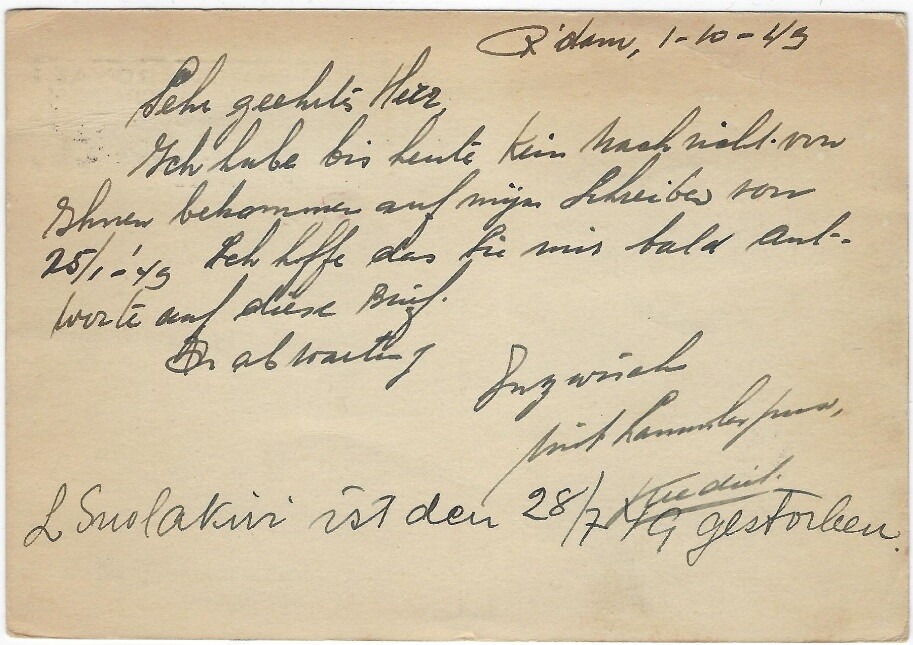 R'dam, 1-10-49
Sehr geehrte Herr,
Ich habe bis heute Kein Nachricht von
Ihnen bekommen auf mijn Schreiben von
25/1-'49 Ich hffe das Sie mir bald Ant-
worte auf diese Brief.
In abwarting
Inzwisch
mit Sammlergruss,
L Suolakivi ist den 28/7 49 gestorben.